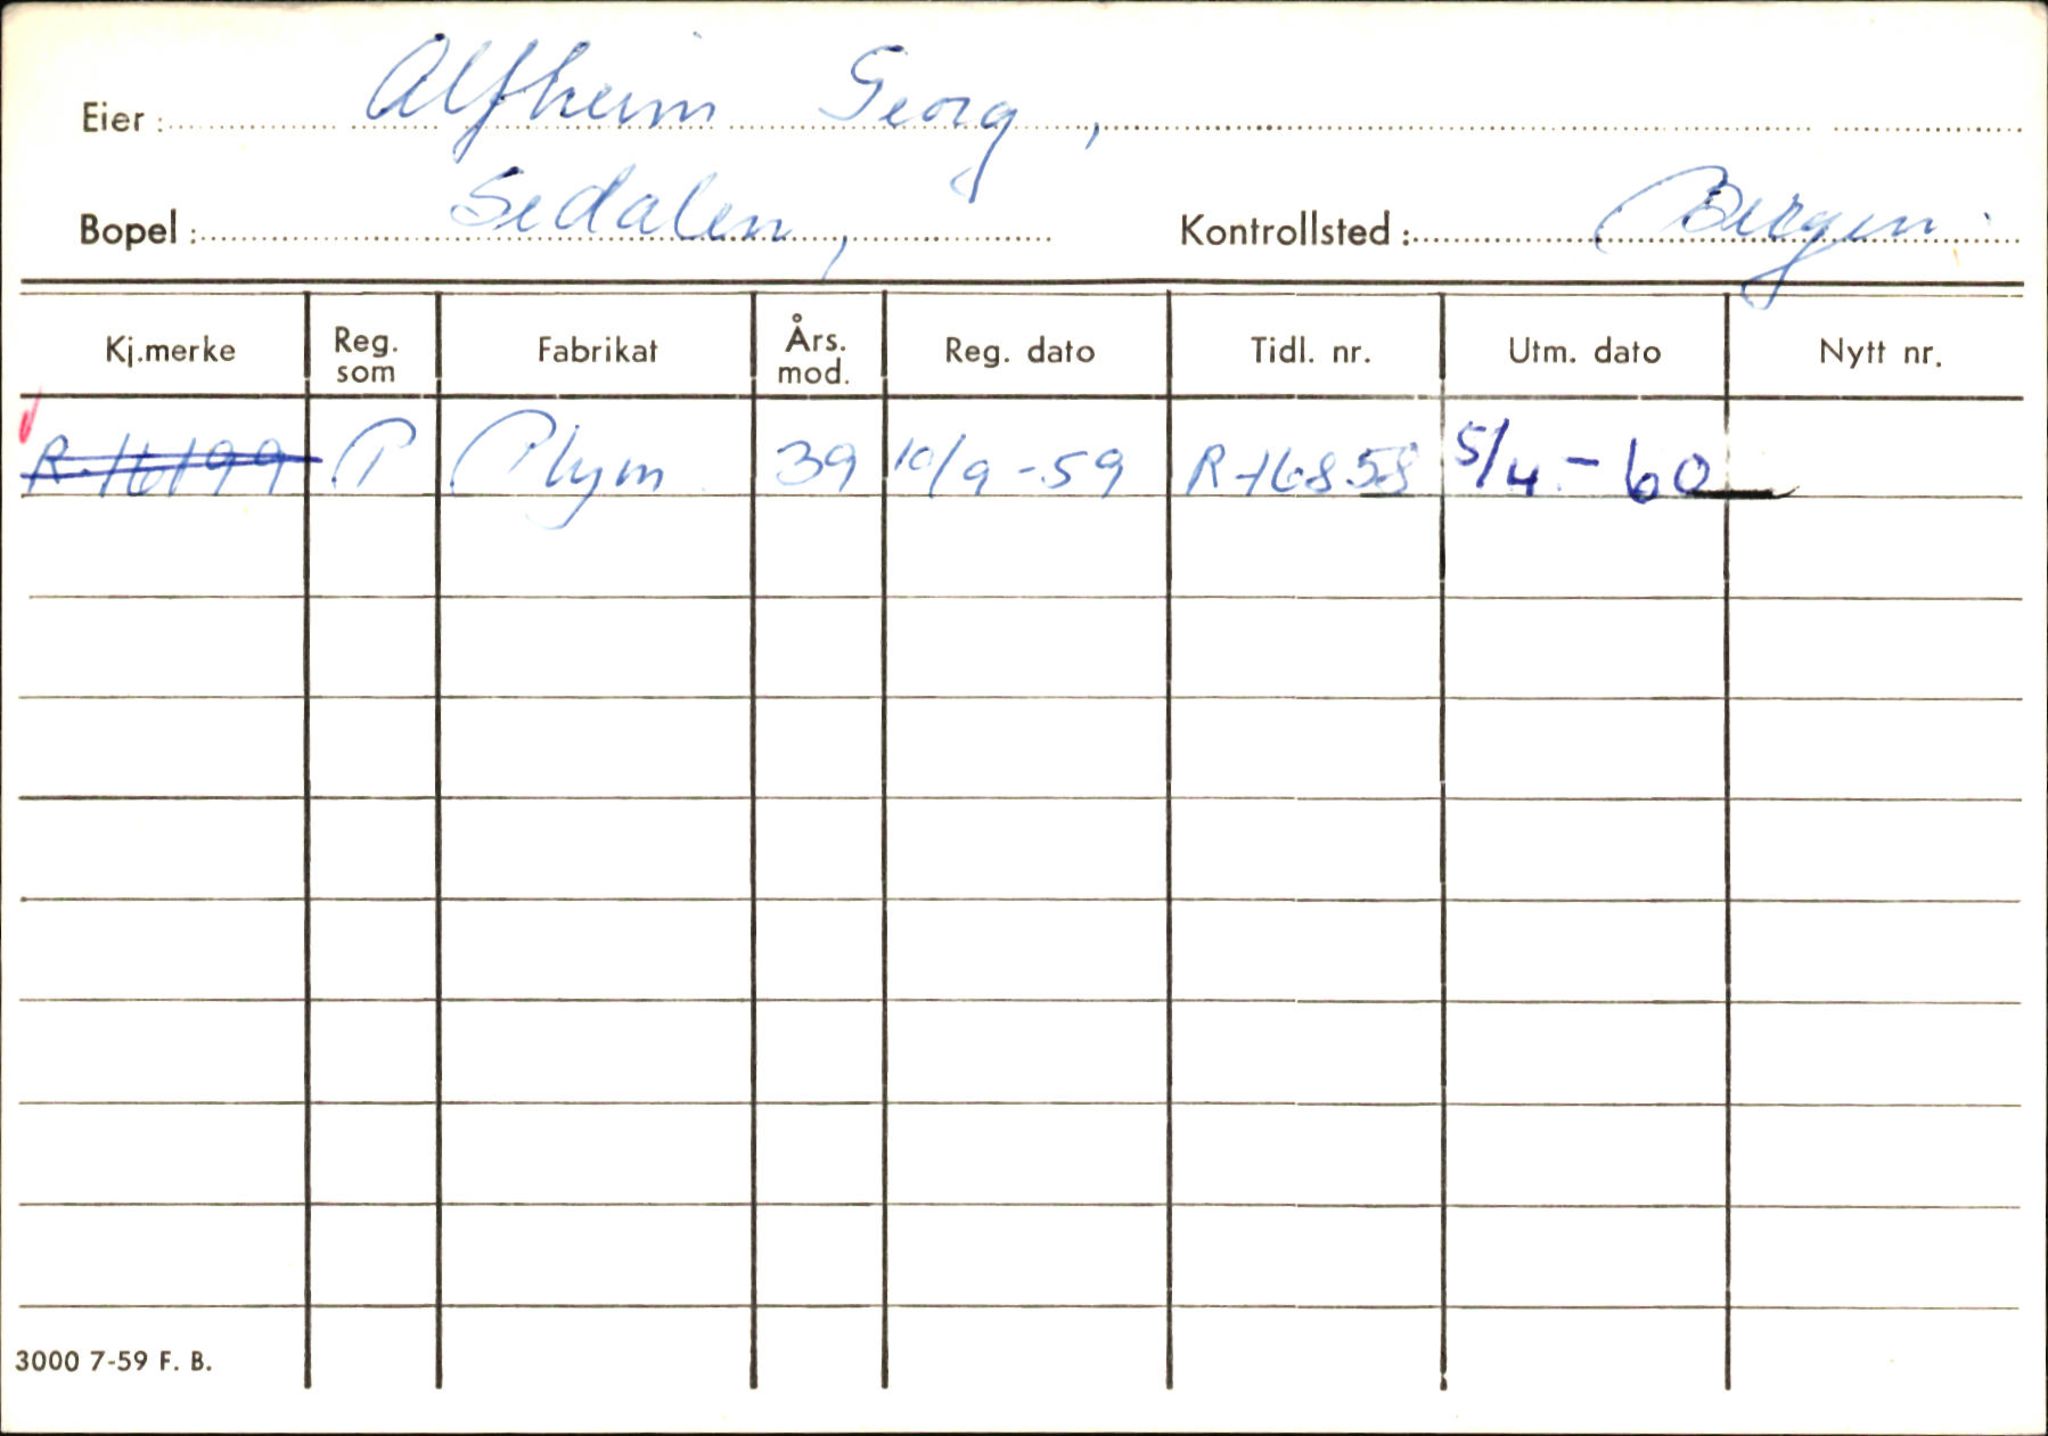 Eier: Alfheim Georg,
Bopel: Sedalen, Kontrollsted: Bergen.
Kj.merke Reg. som Fabrikat Års. mod. Reg. dato Tidl. nr. Utm. dato Nytt nr.
R-16199 P Plym. 39 10/9-59 R-16858 5/4-60
3000 7-59 F. B.